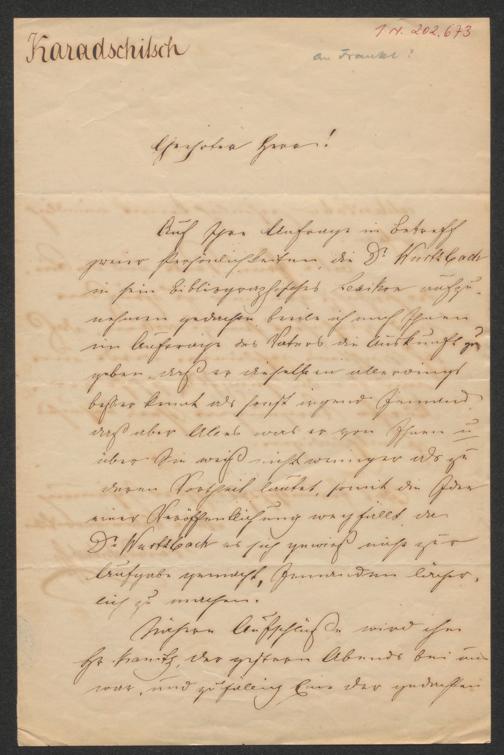 Karadschitsch
I. N. 202.673
an Frankl?
Geehrter Herr!
Auf Ihre Anfrage in Betreff
zweier Persönlichkeiten, die Dr. Wurtzbach
in sein bibliographisches Lexikon aufzu-
nehmen gedachte beeile ich mich Ihnen
im Auftrage des Vaters die Auskunft zu
geben, daß er dieselben allerdings
besser kennt als sonst irgend Jemand,
daß aber Alles was er von Ihnen u
über Sie weiß nicht weniger als zu
deren Vortheil lautet, somit die Idee
einer Veröffentlichung wegfällt, da
Dr. Wurtzbach es sich gewiß nicht zur
Aufgabe gemacht, Jemanden lächer-
lich zu machen.
Nähere Aufschlüße wird Ihnen
Hr Kanitz, der gestern Abends bei uns
war, und zufällig Eine der gedachten